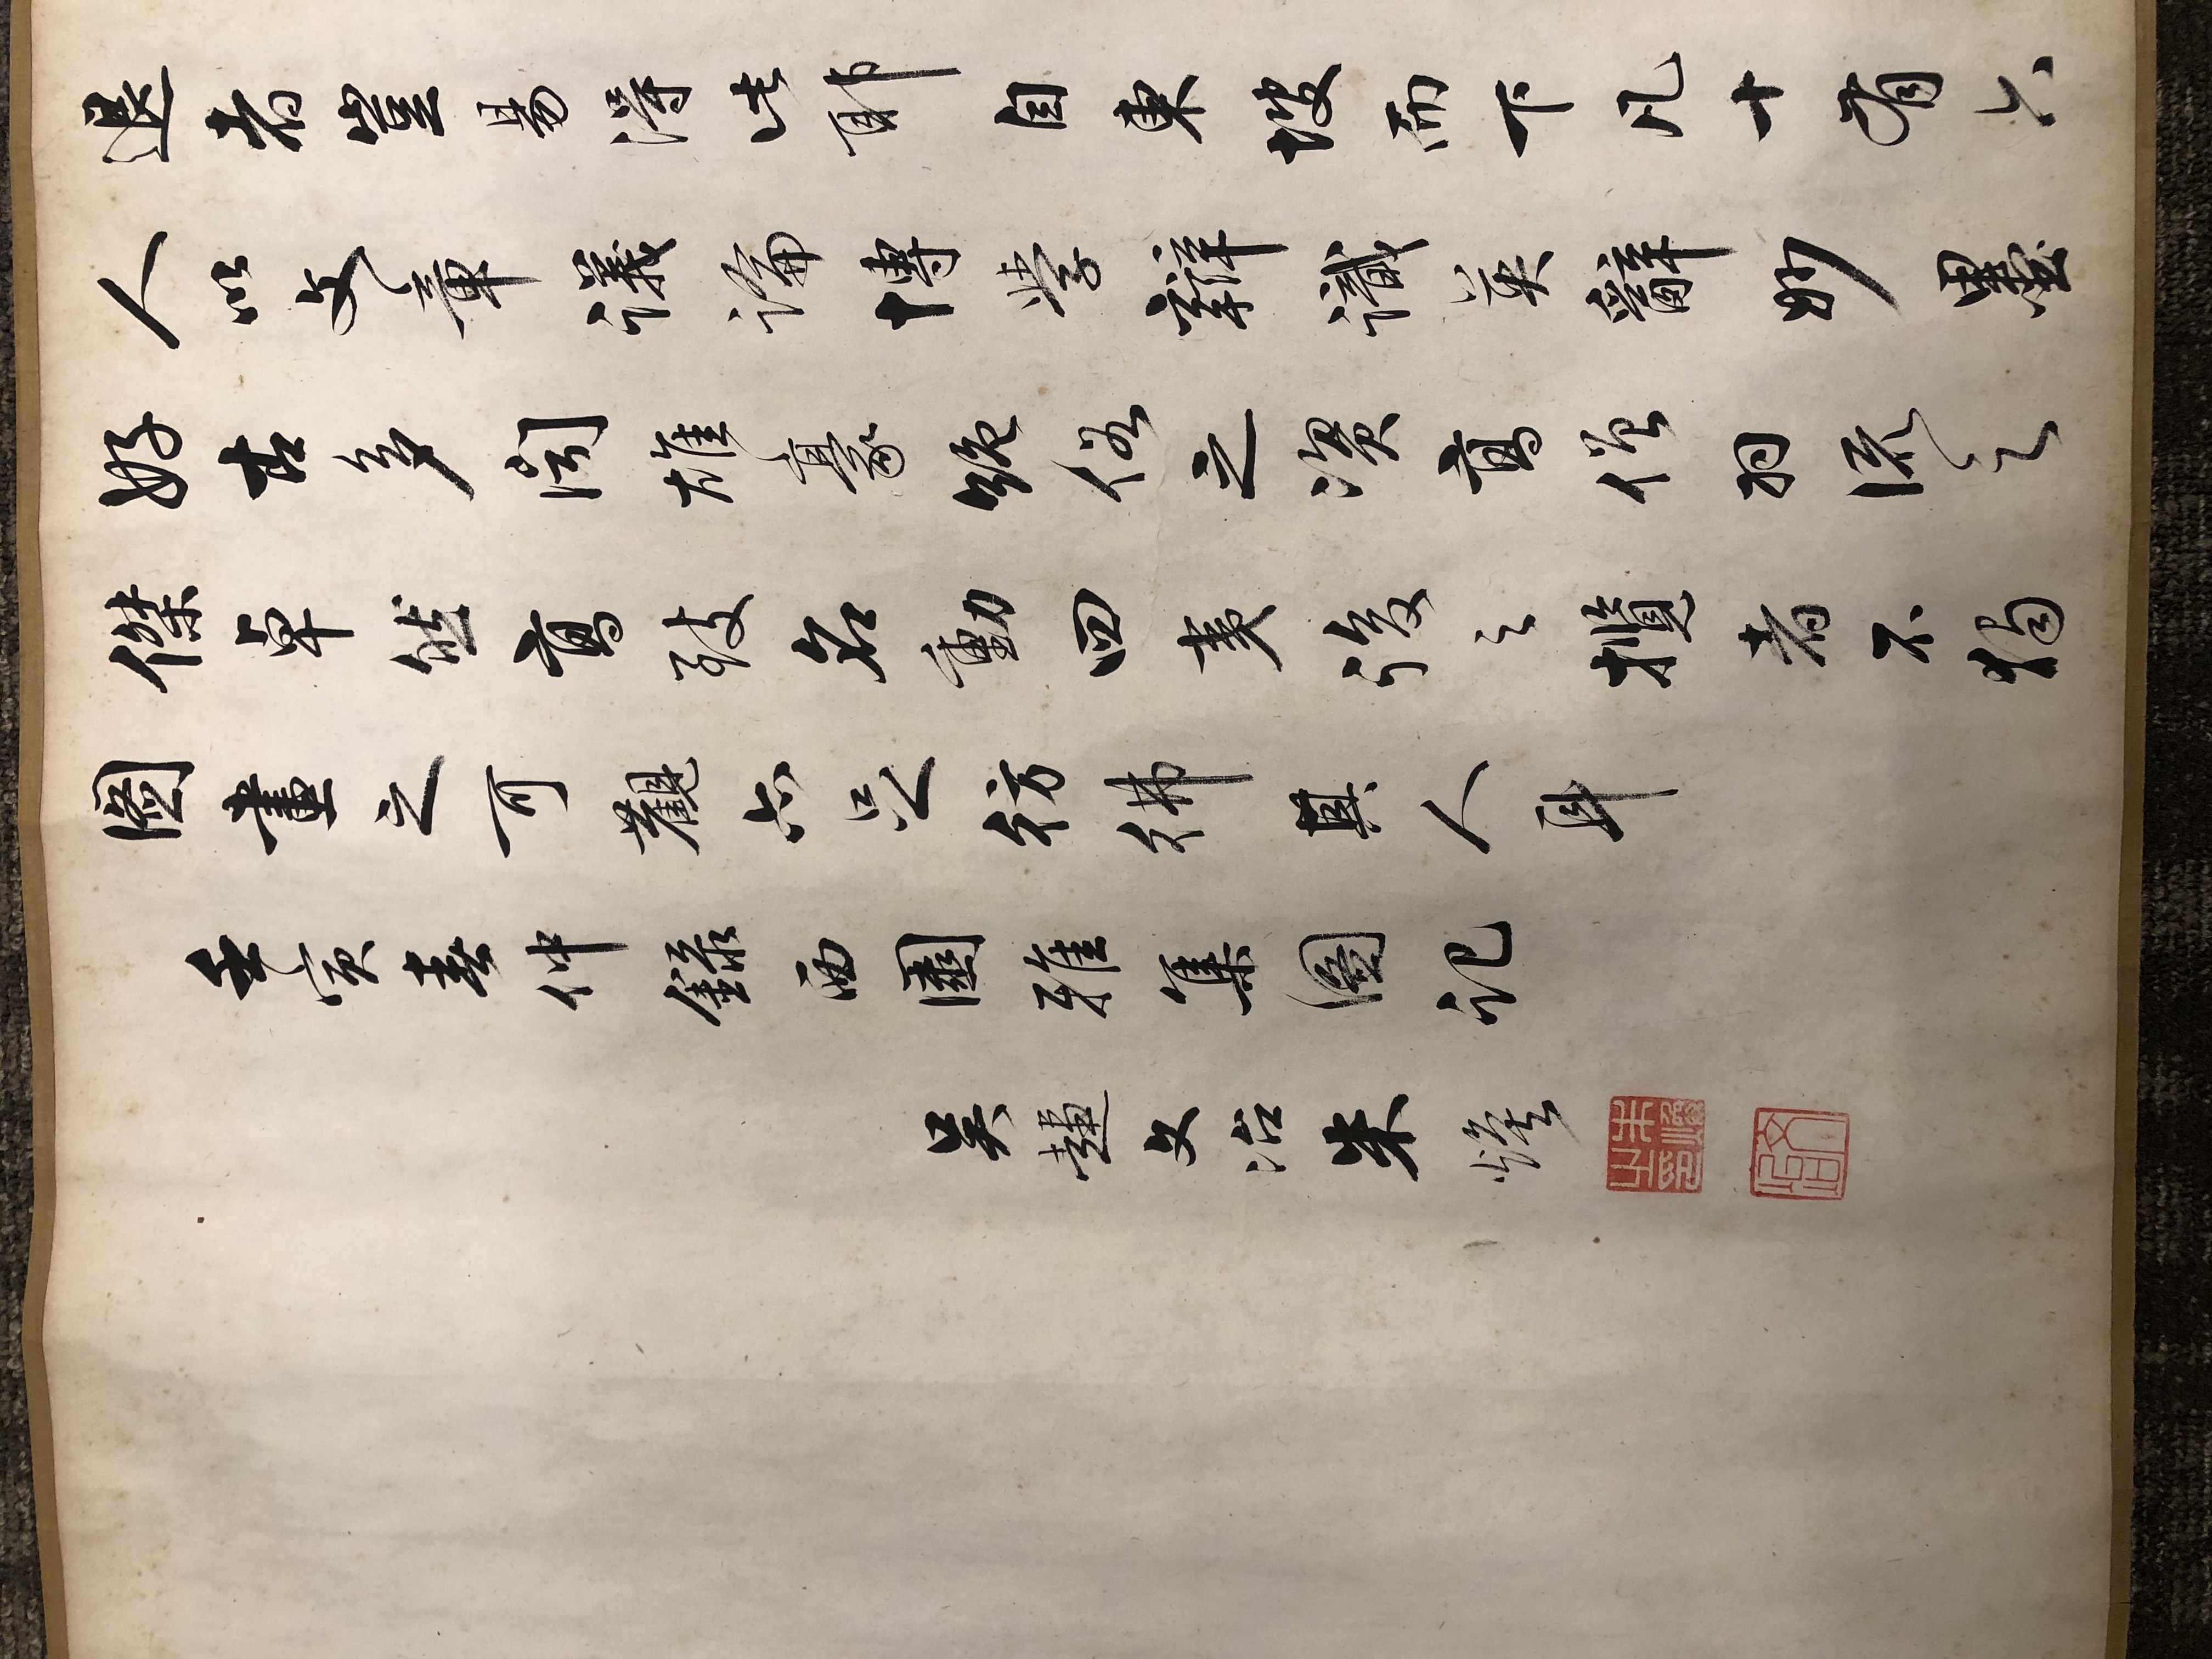 退者豈易得此耶自東坡而下凡十有六
人以文章議論博學辨識英辭妙墨
好古多聞雄豪絕俗之資高僧羽流之
傑卓然高致名動四夷後之攬者不獨
圖畫之可觀亦足彷彿其人耳
壬寅春仲錄西園雅集圖記
吳趨文冶朱